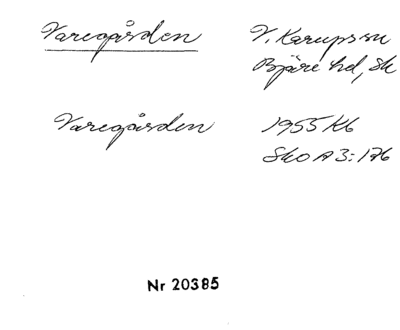 Varegården
V. Karups sn
Bjäre hd, Sk
Varegården
1955 Kb
Sko A 3:176
Nr 20385